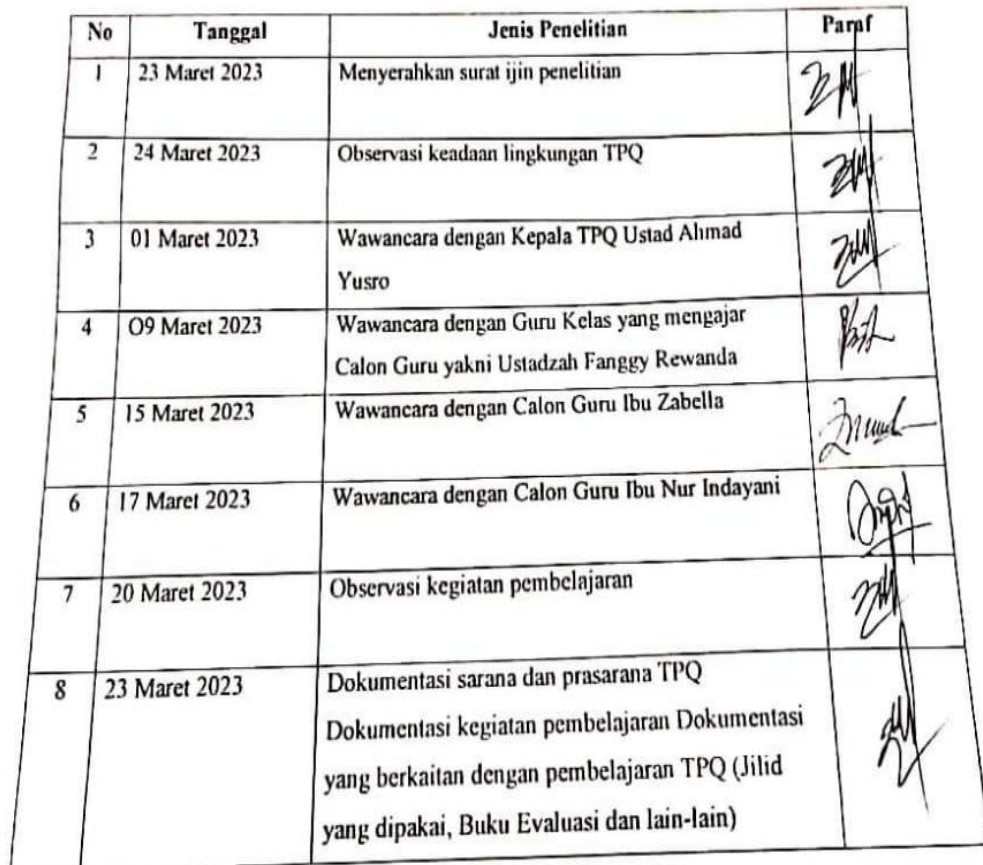 No Tanggal Jenis Penelitian Paraf
1 23 Maret 2023 Menyerahkan surat ijin penelitian
2 24 Maret 2023 Observasi keadaan lingkungan TPQ
3 01 Maret 2023 Wawancara dengan Kepala TPQ Ustad Ahmad
Yusro
4 O9 Maret 2023 Wawancara dengan Guru Kelas yang mengajar
Calon Guru yakni Ustadzah Fanggy Rewanda
5 15 Maret 2023 Wawancara dengan Calon Guru Ibu Zabella
6 17 Maret 2023 Wawancara dengan Calon Guru Ibu Nur Indayani
7 20 Maret 2023 Observasi kegiatan pembelajaran
8 23 Maret 2023 Dokumentasi sarana dan prasarana TPQ
Dokumentasi kegiatan pembelajaran Dokumentasi
yang berkaitan dengan pembelajaran TPQ (Jilid
yang dipakai, Buku Evaluasi dan lain-lain)